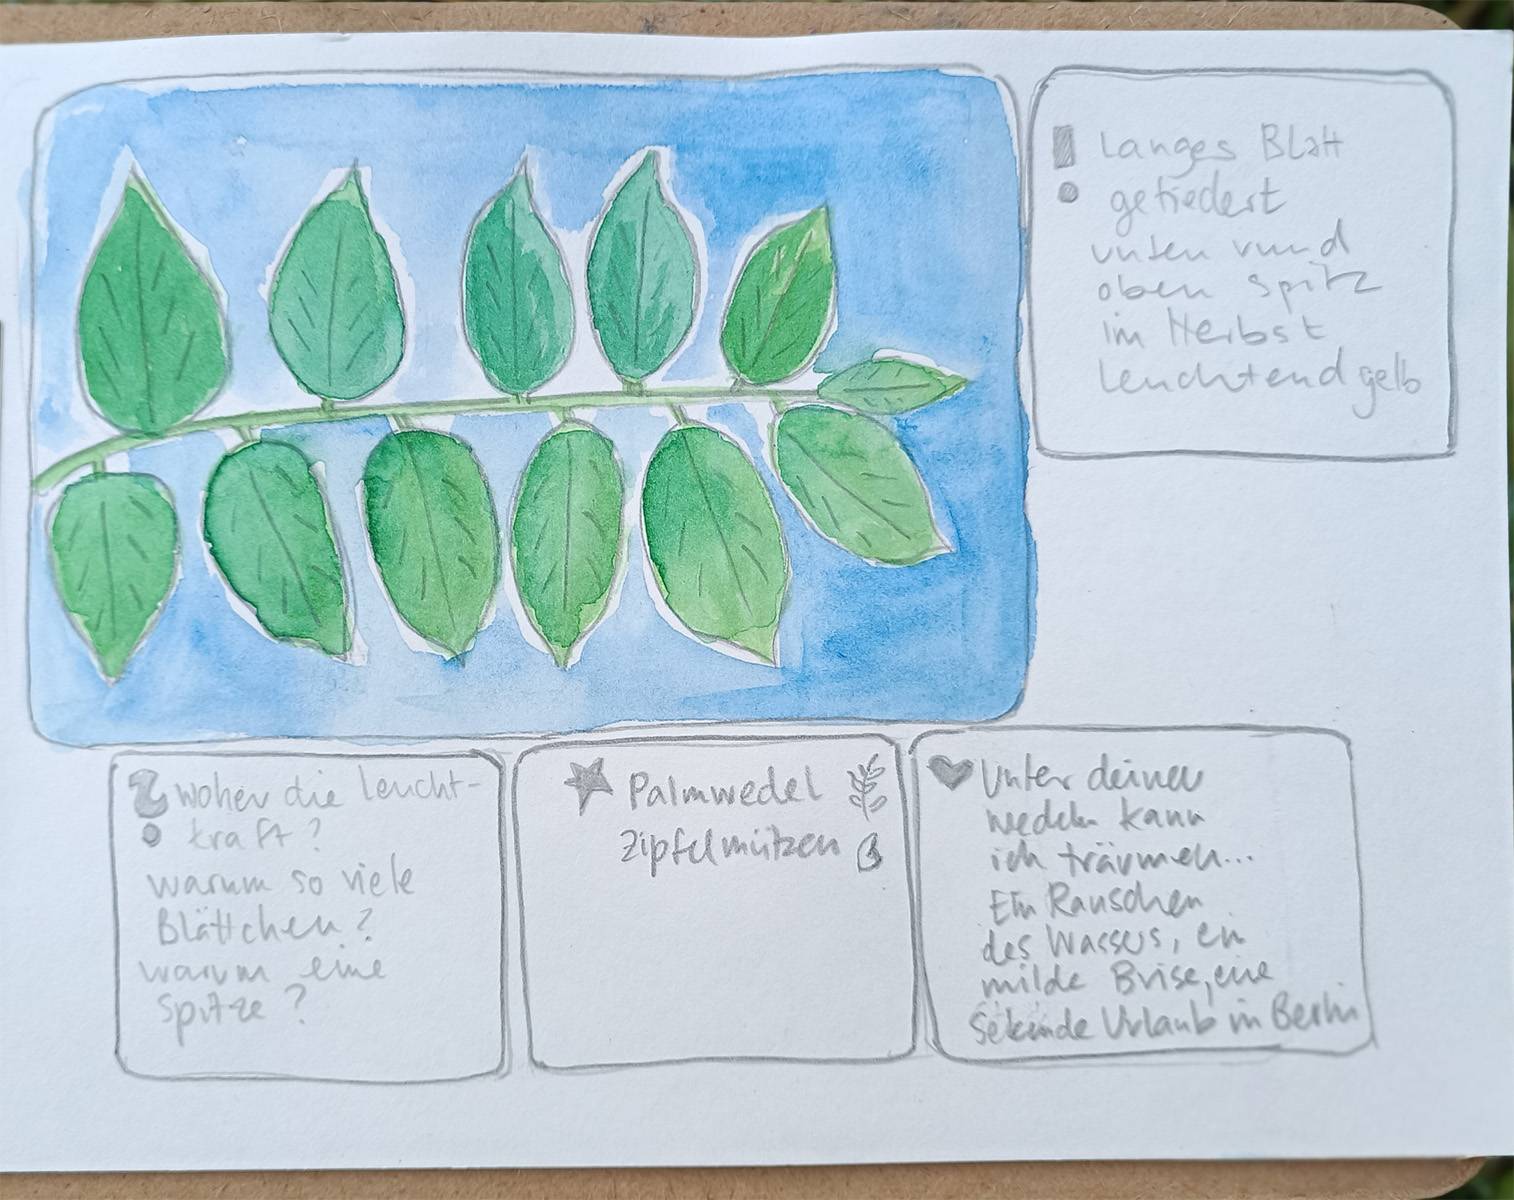 Langes Blatt
gefiedert
unten rund
oben spitz
im Herbst
leuchtend gelb
woher die Leucht-
kraft?
warum so viele
Blättchen?
warum eine
Spitze?
Palmwedel
Zipfelmützen
Unter deinen
Wedeln kann
ich träumen...
Ein Rauschen
des Wassers, ein
milde Brise, eine
Sekunde Urlaub in Berlin